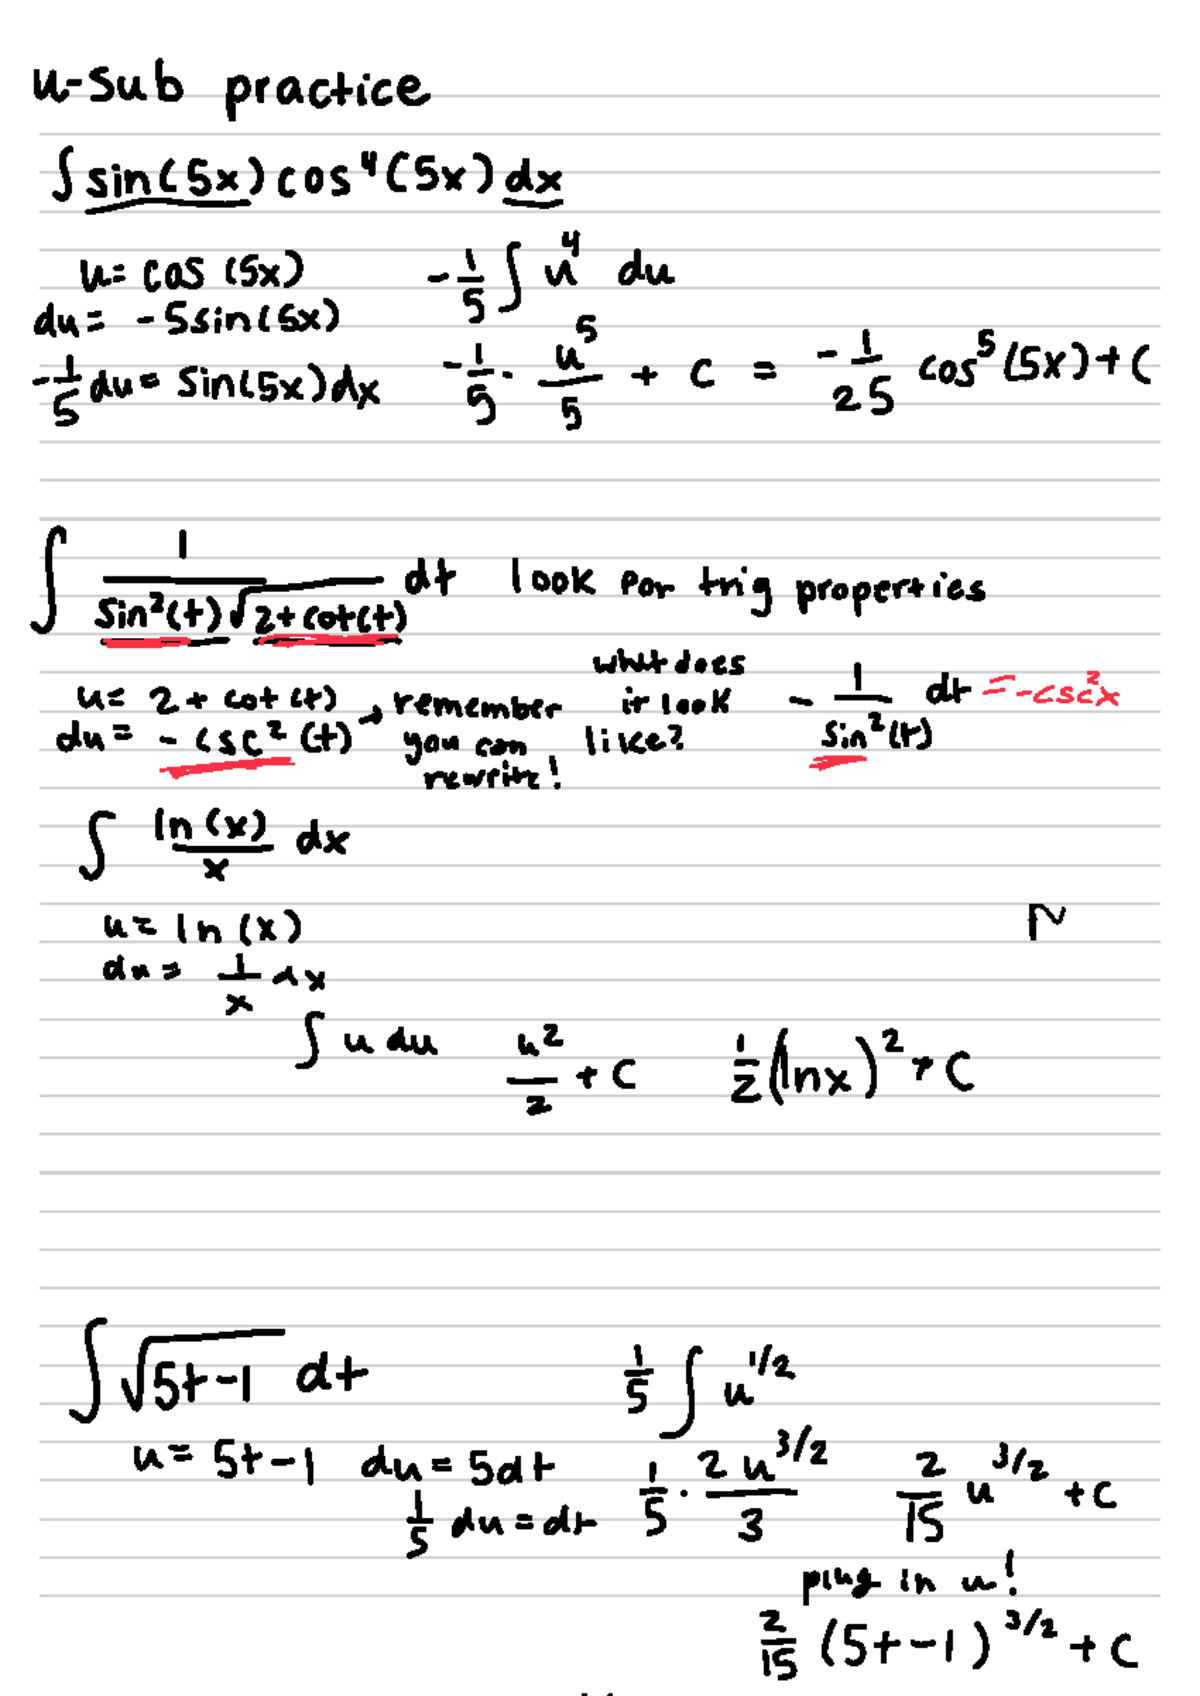 u-sub practice
∫ sin(5x) cos⁴(5x) dx
u = cos (5x)   -1/5 ∫ u⁴ du
du = -5sin(5x)
-1/5 du = sin(5x)dx   -1/5 · u⁵/5 + C = -1/25 cos⁵(5x) + C
∫ 1/(sin²(t)√(2+cot(t))) dt   look for trig properties
u = 2 + cot (t) → remember you can rewrite!
du = -csc²(t)
what does it look like?   -1/sin²(t) dt = -csc²x
∫ ln(x)/x dx
u = ln (x)
du = 1/x dx
∫ u du   u²/2 + C   1/2 (lnx)² + C
∫ √(5t-1) dt   1/5 ∫ u^1/2
u = 5t-1   du = 5dt   1/5 · 2u^3/2/3   2/15 u^3/2 + C
1/5 du = dt
plug in u!
2/15 (5t-1)^3/2 + C